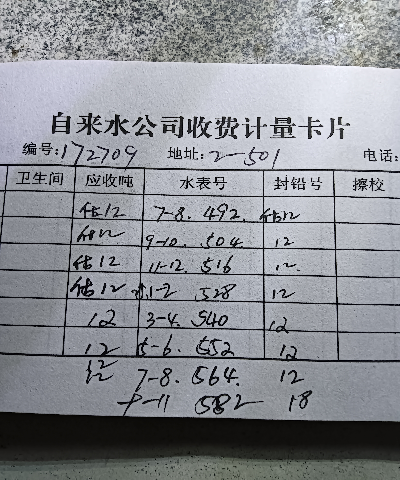 自来水公司收费计量卡片
编号:172709 地址:2-501 电话:
卫生间 应收吨 水表号 封铅号 擦校
估12 7-8. 492. 估12
估12 9-10. 504. 12
估12 11-12. 516 12.
估12 1-2 528 12
12 3-4. 540 12
12 5-6. 552 12
12 7-8. 564. 12
9-11 582 18